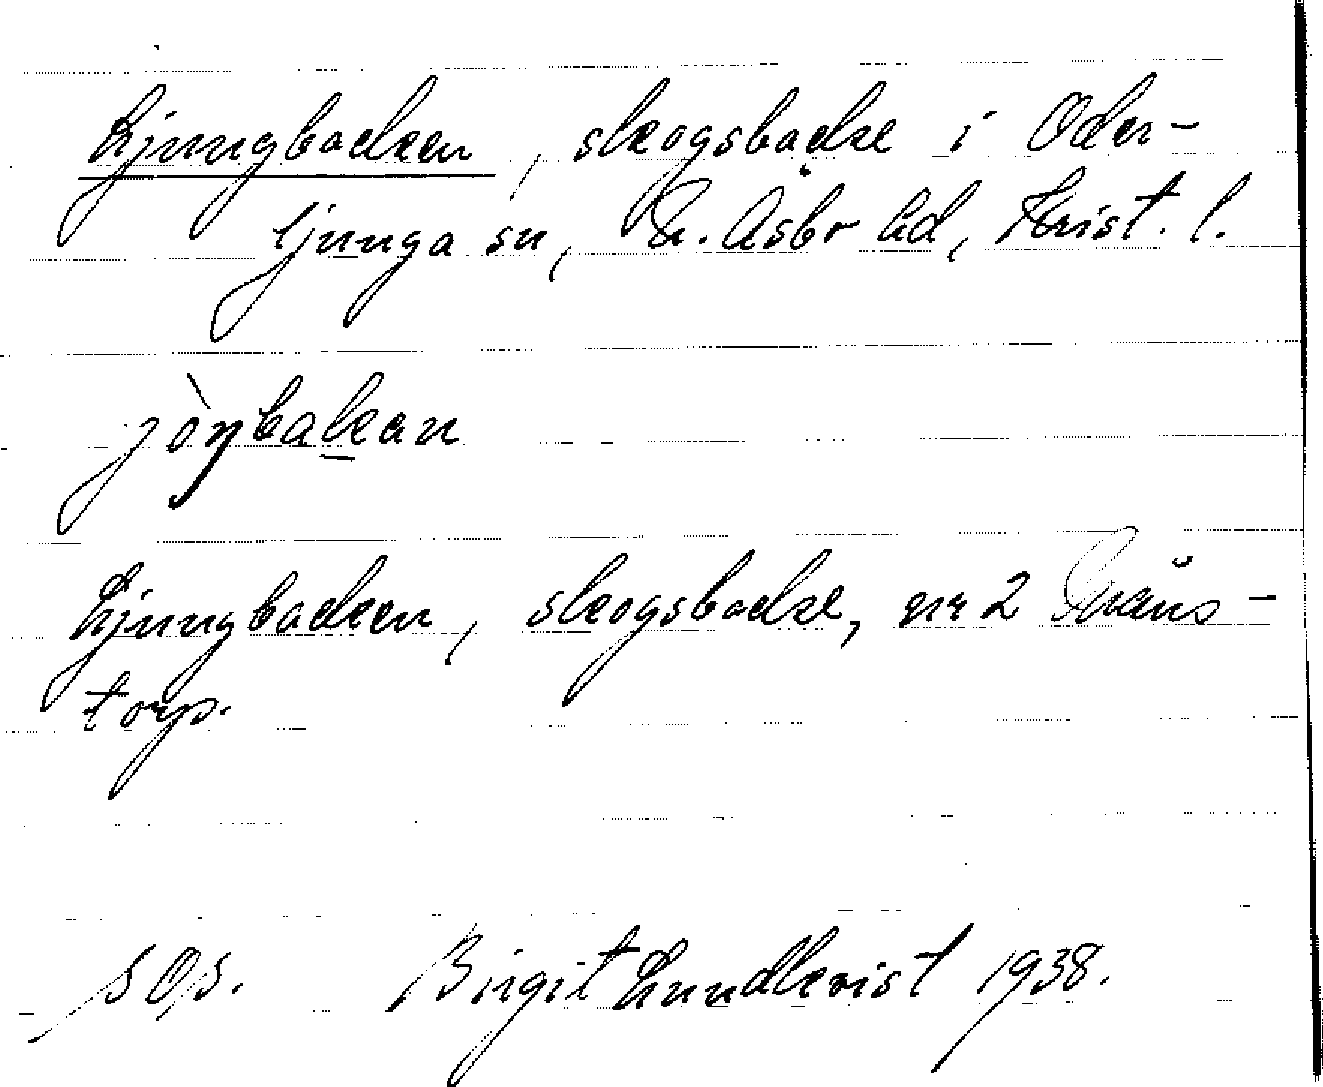 Ljungbacken, skogsbacke i Oder-
ljunga sn, N. Åsbo hd, Krist. l.
jòŋbakan
Ljungbacken, skogsbacke, nr 2
torp.
sOs. Birgit Lundkvist 1938.